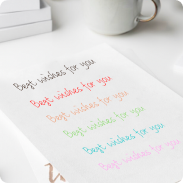 Best wishes for you
Best wishes for you
Best wishes for you
Best wishes for you
Best wishes for you
Best wishes for you